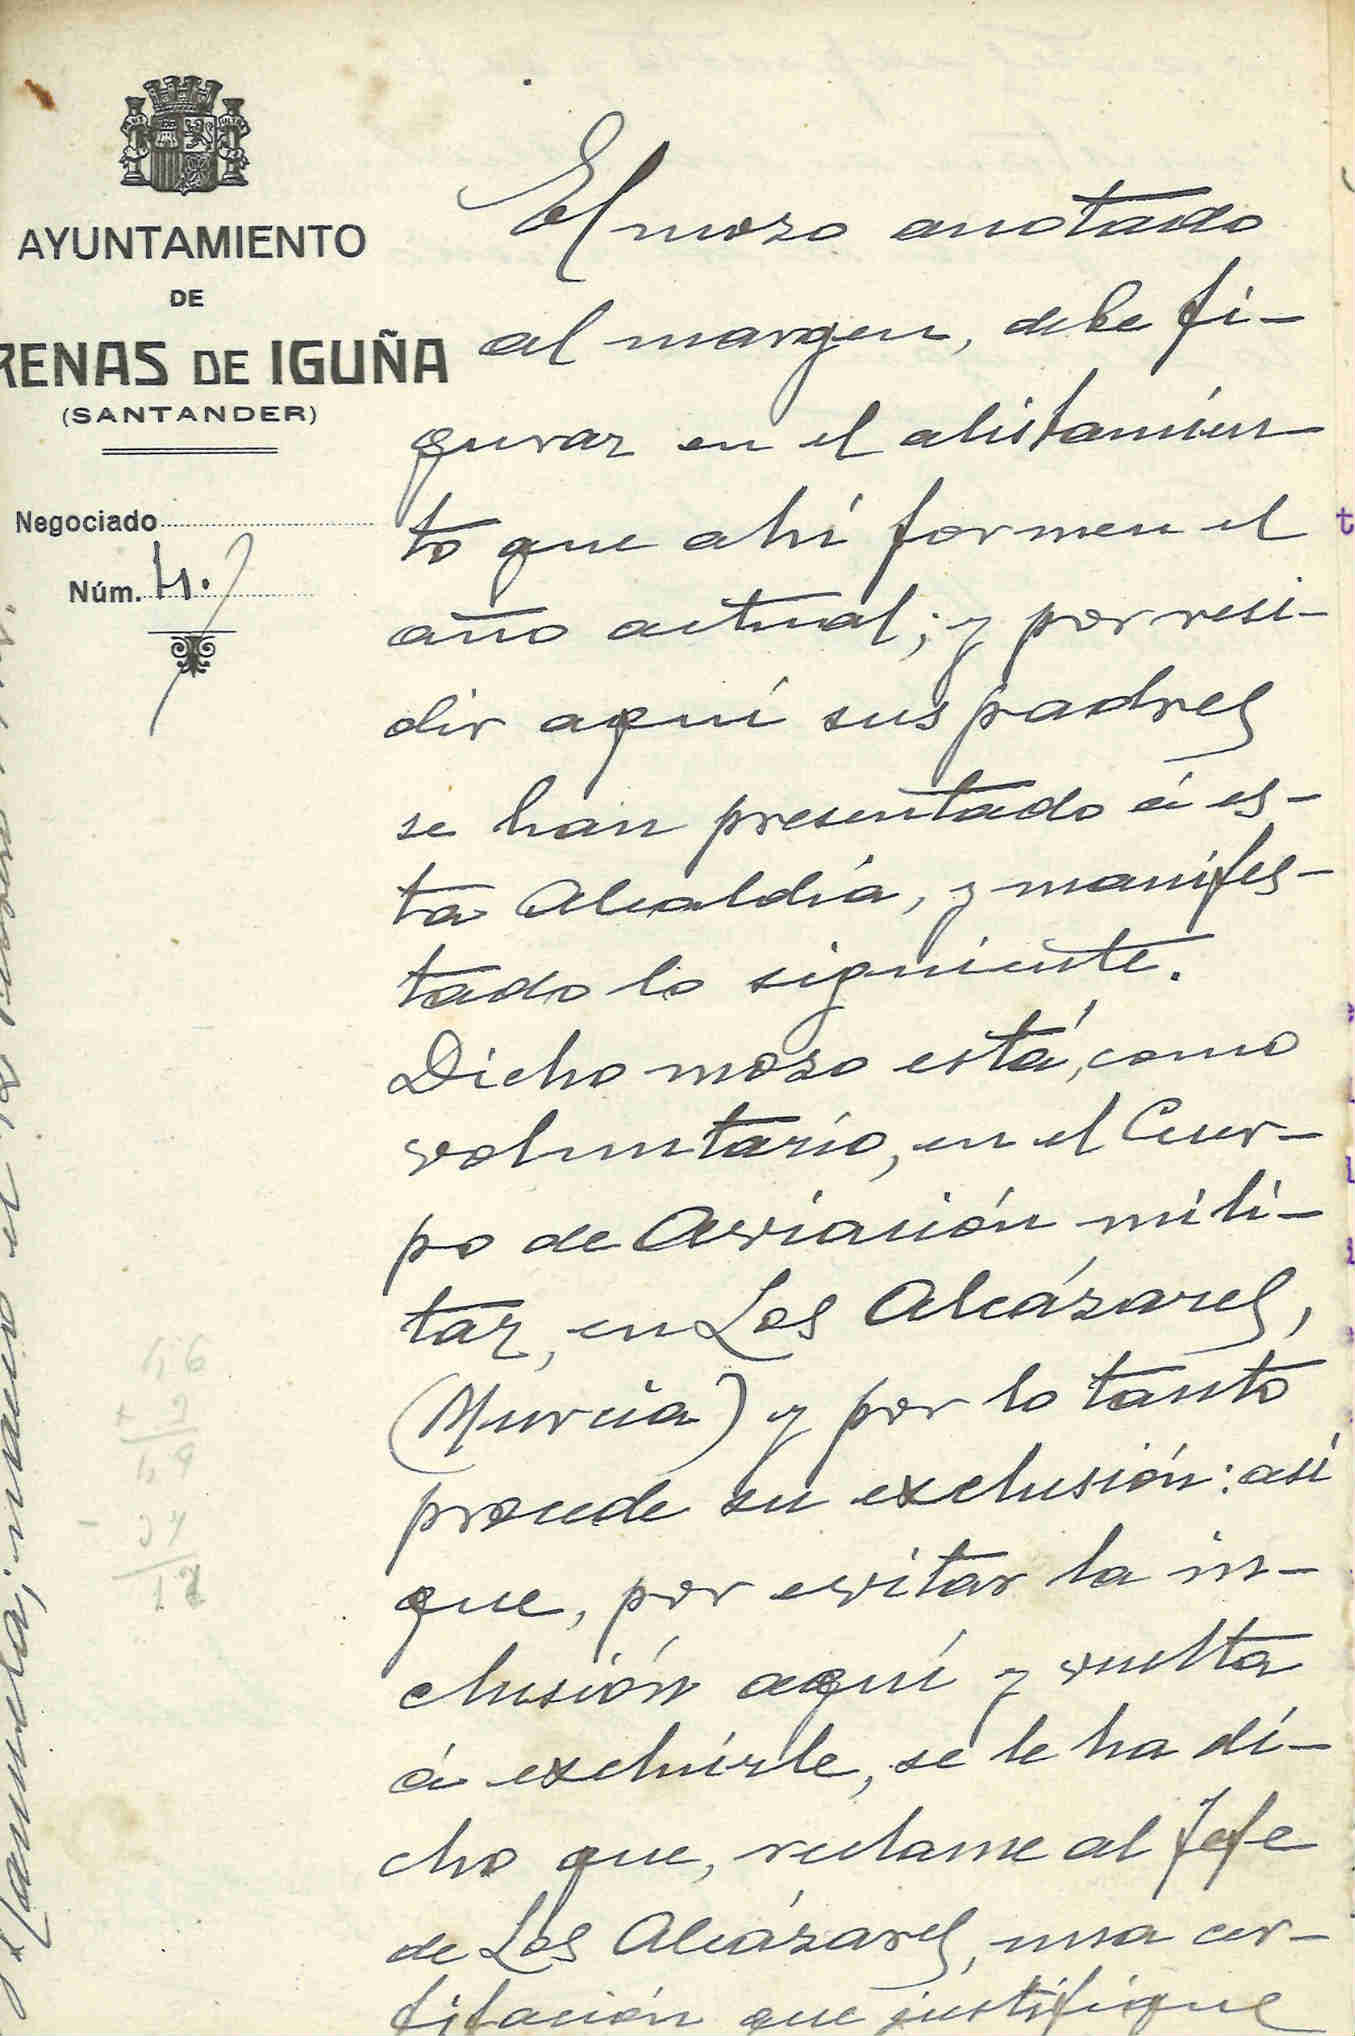 AYUNTAMIENTO
DE
RENAS DE IGUÑA
(SANTANDER)
Negociado
Núm. 4.
El mozo anotado
al margen, debe fi-
gurar en el alistamien
to que ahí formen el
año actual; y por resi-
dir aquí sus padres
se han presentado á es-
ta Alcaldía, y manifes-
tado lo siguiente.
Dicho mozo está, como
voluntario, en el Cuer-
po de Aviación mili-
tar, en Los Alcázares,
(Murcia) y por lo tanto
procede su exclusión: así
que, por evitar la in-
clusión aquí y vuelta
á excluirle, se le ha di-
cho que, reclame al Jefe
de Los Alcázares, una cer-
tificación que justifique